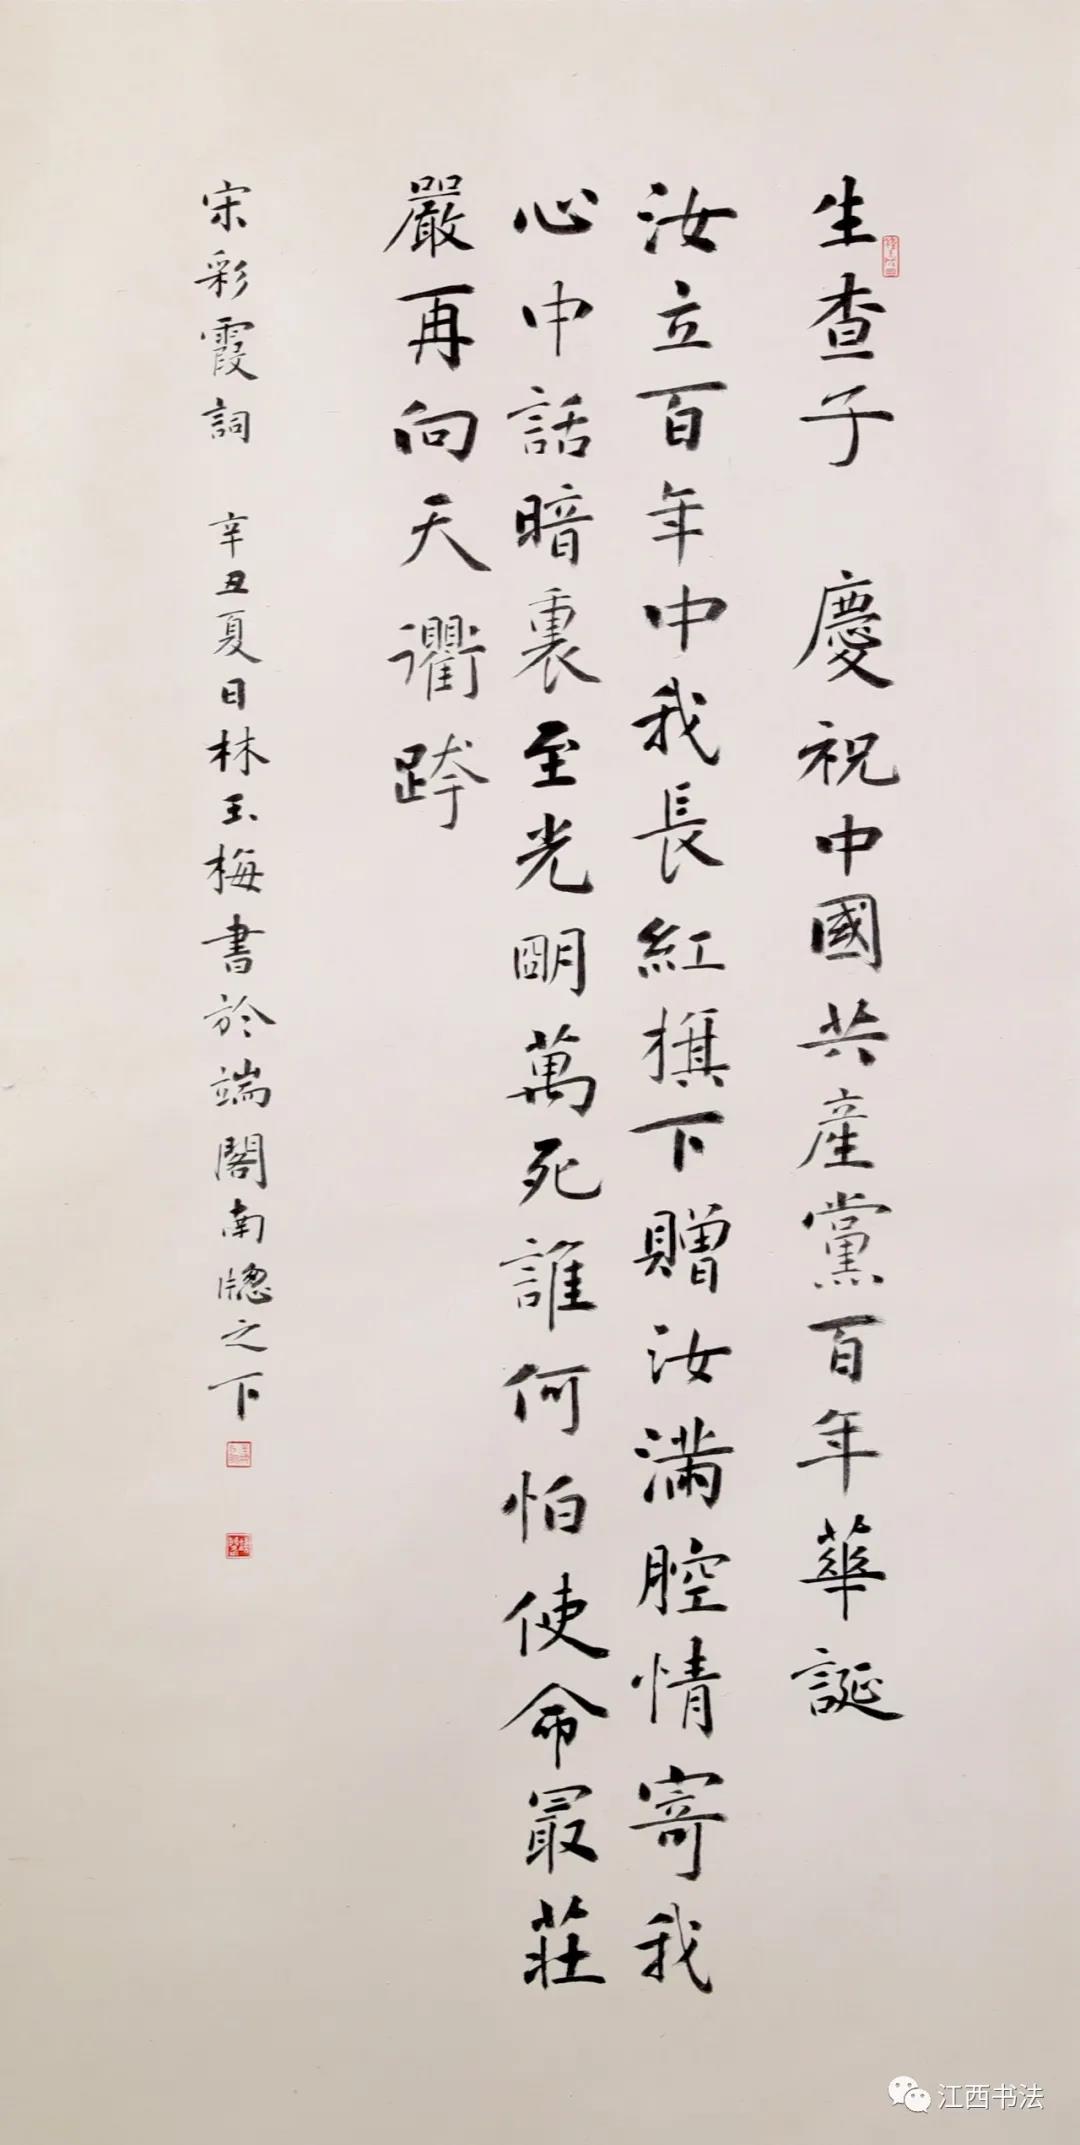 生查子 慶祝中國共産黨百年華誕
汝立百年中我長紅旗下贈汝滿腔情寄我
心中話暗裏至光明萬死誰何怕使命最莊
嚴再向天衢跨
宋彩霞詞 辛丑夏日林玉梅書於端閣南牕之下
江西书法